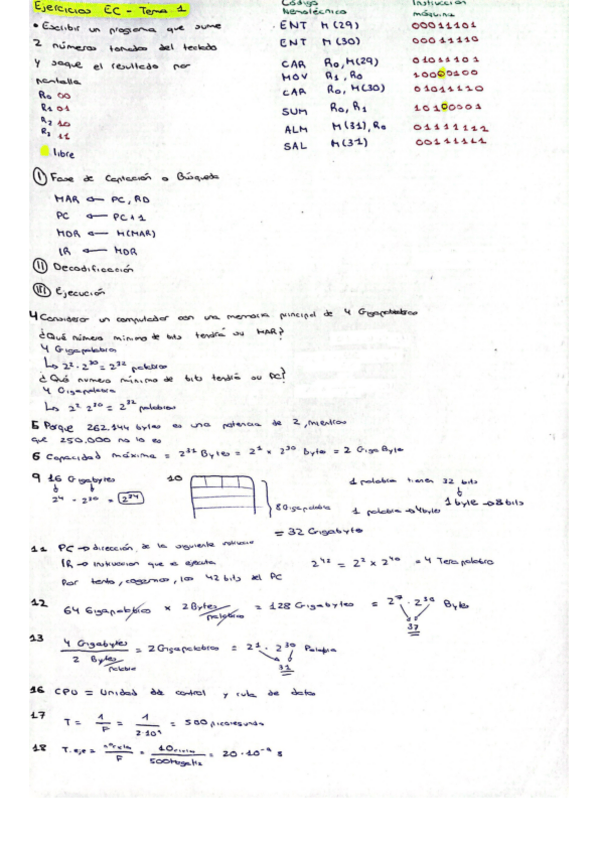 Ejercicios EC - Tema 1
• Escribir un programa que sume
2 números tomados del teclado
y saque el resultado por
pantalla
R0 00
R1 01
R2 10
R3 11
libre
Código Nemotécnico
Instrucción máquina
ENT M(29) 00011101
ENT M(30) 00011110
CAR R0, M(29) 01011101
MOV R1, R0 10000100
CAR R0, M(30) 01011110
SUM R0, R1 10100001
ALM M(31), R0 01111111
SAL M(31) 00111111
I Fase de Captación o Búsqueda
MAR ← PC, RD
PC ← PC+1
MDR ← M(MAR)
IR ← MDR
II Decodificación
III Ejecución
4 Considerar un computador con una memoria principal de 4 Gigapalabras
¿Qué número mínimo de bits tendrá su MAR?
4 Gigapalabras
↳ 2² · 2³⁰ = 2³² palabras
¿Qué numero mínimo de bits tendrá su PC?
4 Gigapalabra
↳ 2² 2³⁰ = 2³² palabras
5 Porque 262.144 bytes es una potencia de 2, mientras
que 250.000 no lo es
6 Capacidad máxima = 2³¹ Bytes = 2¹ × 2³⁰ byte = 2 GigaByte
9 16 Gigabytes
2⁴ · 2³⁰ = 2³⁴
10
8 Gigapalabra
1 palabra tienen 32 bits
1 byte → 8 bits
1 palabra → 4 byte
= 32 Gigabyte
11 PC → dirección de la siguiente
IR → Instruccion que se ejecuta
Por tanto, cogemos, los 42 bits del PC
2⁴² = 2² × 2⁴⁰ = 4 Terapalabra
12 64 Gigapalabra × 2 Bytes/palabra = 128 Gigabytes = 2⁷ · 2³⁰ Byte
37
13 4 Gigabytes / 2 Byte/palabra = 2 Gigapalabras = 2¹ · 2³⁰ Palabra
31
16 CPU = Unidad de control y ruta de datos
17 T = 1/F = 1/2·10⁹ = 500 picosegundo
18 T. eje = /F = 10 / 500 = 20 · 10⁻⁹ s